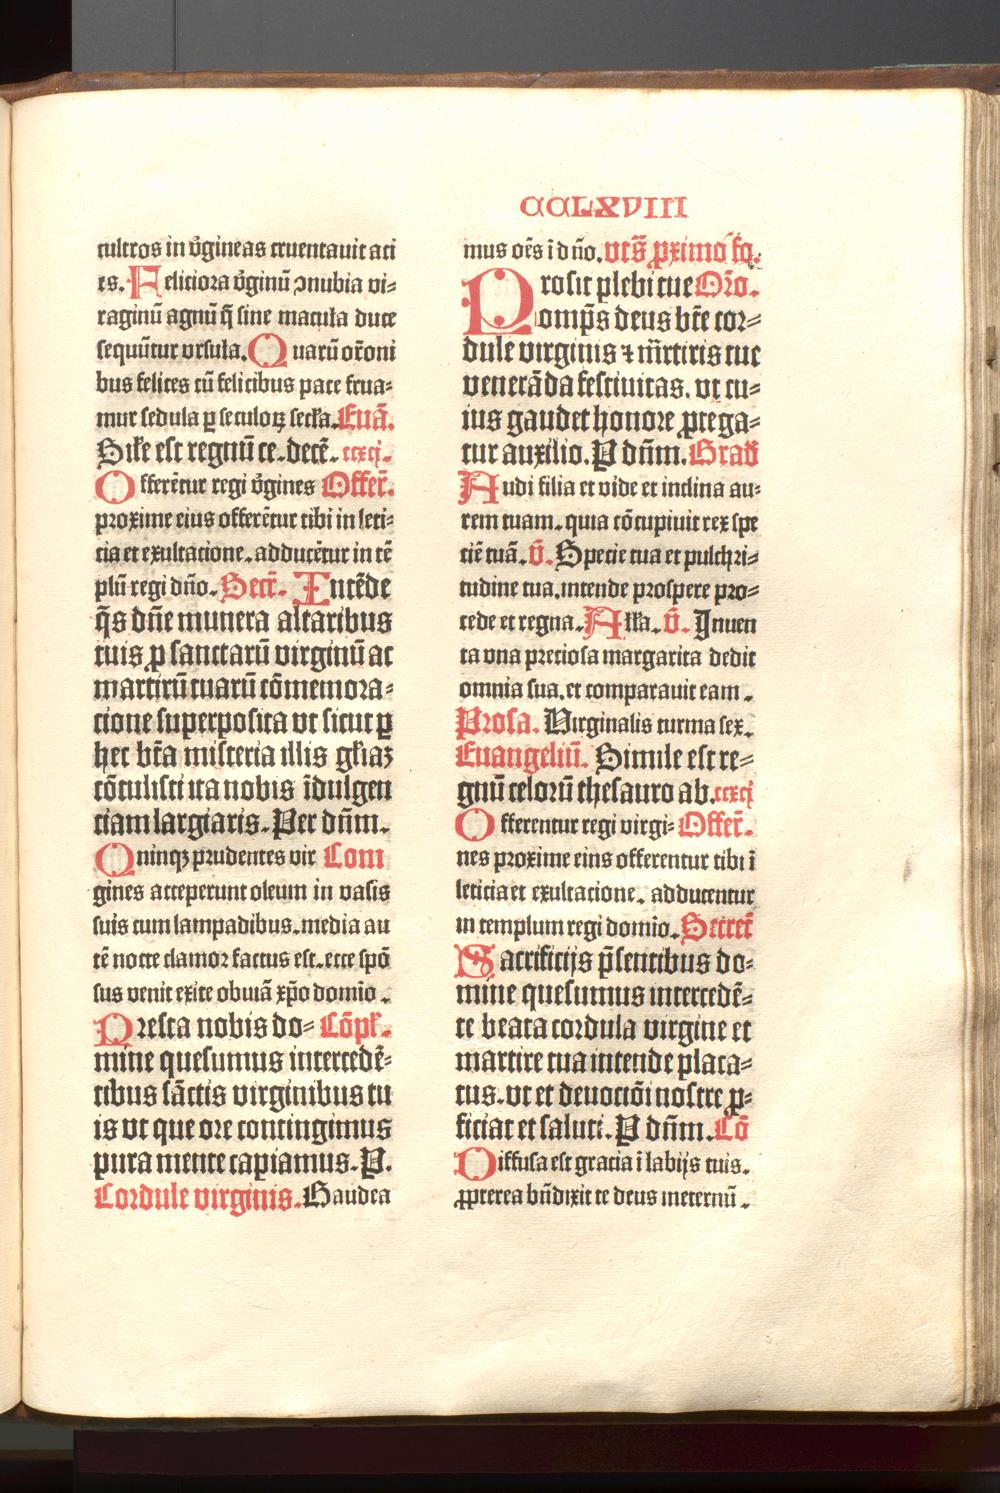 CCLXVIII
cultros in v̄gineas cruentauit aci
es. Feliciora v̄ginū ꝯnubia vi⸗
raginū agnū q̄ sine macula duce
sequūtur vrsula. Quarū or̄oni
bus felices cū felicibus pace frua⸗
mur sedula ꝑ seculoꝝ secła. Euā.
Sile est regnū ce. decē. ccxcj.
Offerētur regi v̄gines Offer̄.
proxime eius offerētur tibi in leti⸗
cia et exultacione. adducētur in tē
plū regi dño. Secr̄. Intēde
q̄s dñe munera altaribus
tuis ꝓ sanctarū virginū ac
martirū tuarū cōmemora⸗
cione superposita vt sicut ꝑ
hec btā misteria illis głiaꝫ
cōtulisti ita nobis īdulgen
ciam largiaris. Per dñm.
Quinqꝫ prudentes vir Com
gines acceperunt oleum in vasis
suis cum lampadibus. media au
tē nocte clamor factus est. ecce spō
sus venit exite obuiā xp̄o domīo.
Presta nobis do⸗ Cōpł.
mine quesumus intercedē⸗
tibus sāctis virginibus tu
is vt que ore contingimus
pura mente capiamus. P.
Cordule virginis. Gaudea
mus oēs ī dño. vts̄ ꝓximo fo.
Prosit plebi tue Or̄o.
omp̄s deus btē cor⸗
dule virginis ⁊ mr̄tiris tue
venerāda festiuitas. vt cu⸗
ius gaudet honore ꝓtega⸗
tur auxilio. P dñm. Grad̄
Audi filia et vide et inclina au⸗
rem tuam. quia cōcupiuit rex spe
ciē tuā. v̄. Specie tua et pulchri⸗
tudine tua. intende prospere pro⸗
cede et regna. Ałła. v̄. Inuen
ta vna preciosa margarita dedit
omnia sua. et comparauit eam.
Prosa. Virginalis turma sex.
Euangeliū. Simile est re⸗
gnū celorū thesauro ab. ccxcj
Offerentur regi virgi⸗ Offer̄.
nes proxime eius offerentur tibi ī
leticia et exultacione. adducentur
in templum regi domīo. Secret̄
Sacrificijs p̄sentibus do⸗
mine quesumus intercedē⸗
te beata cordula virgine et
martire tua intende placa⸗
tus. vt et deuociōi nostre ꝓ⸗
ficiat et saluti. P dñm. Cō
Diffusa est gracia ī labijs tuis.
ꝓpterea bn̄dixit te deus ineternū.